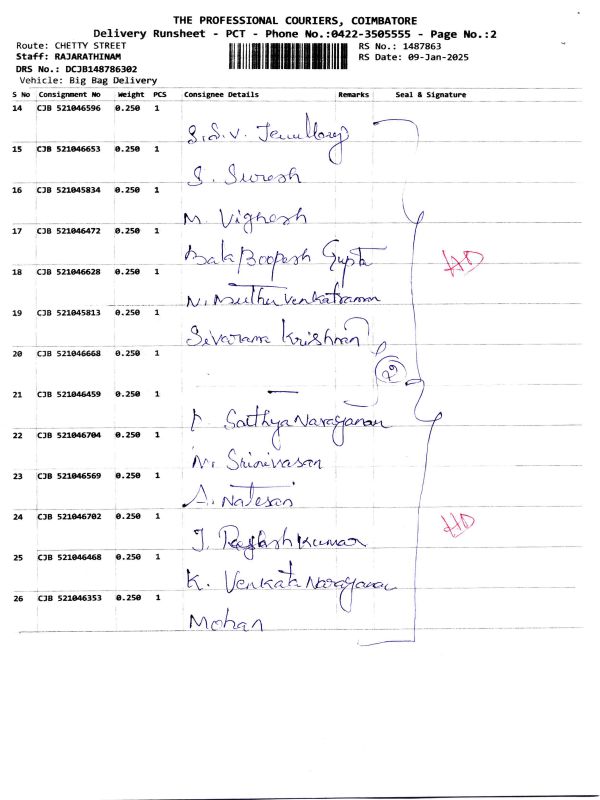 THE PROFESSIONAL COURIERS, COIMBATORE
Delivery Runsheet - PCT - Phone No.:0422-3505555 - Page No.:2
Route: CHETTY STREET RS No.: 1487863
Staff: RAJARATHINAM RS Date: 09-Jan-2025
DRS No.: DCJB148786302
Vehicle: Big Bag Delivery
S No Consignment No Weight PCS Consignee Details Remarks Seal & Signature
14 CJB 521046596 0.250 1
S.S.V. Jewellery
15 CJB 521046653 0.250 1
S. Suresh
16 CJB 521045834 0.250 1
M. Vignesh
17 CJB 521046472 0.250 1
Bala Boopesh Gupta
HD
18 CJB 521046628 0.250 1
N. Muthu Venkatraman
19 CJB 521045813 0.250 1
Sivarama Krishnan
20 CJB 521046668 0.250 1
21 CJB 521046459 0.250 1
Sathya Narayanan
22 CJB 521046704 0.250 1
N. Srinivasan
23 CJB 521046569 0.250 1
A. Natesan
24 CJB 521046702 0.250 1
HD
J. Kumar
25 CJB 521046468 0.250 1
K. Venkata Narayanan
26 CJB 521046353 0.250 1
Mohan